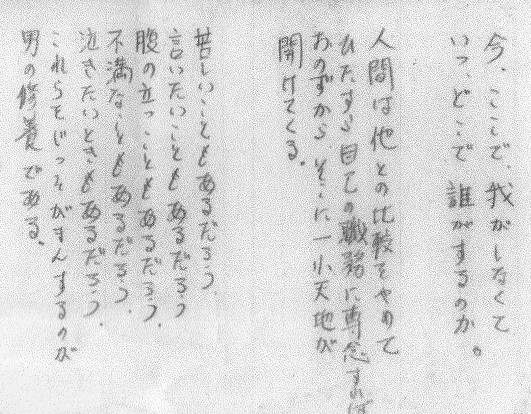 今、ここで、我がしなくて
いつ、どこで、誰がするのか。
人間は他との比較をやめて
ひたすら自己の職務に専念すれば
おのずから、そこに一小天地が
開けてくる。
苦しいこともあるだろう
言いたいこともあるだろう
腹の立つこともあるだろう。
不満なこともあるだろう。
泣きたいときもあるだろう。
これらをじっとがまんするのが
男の修養である。